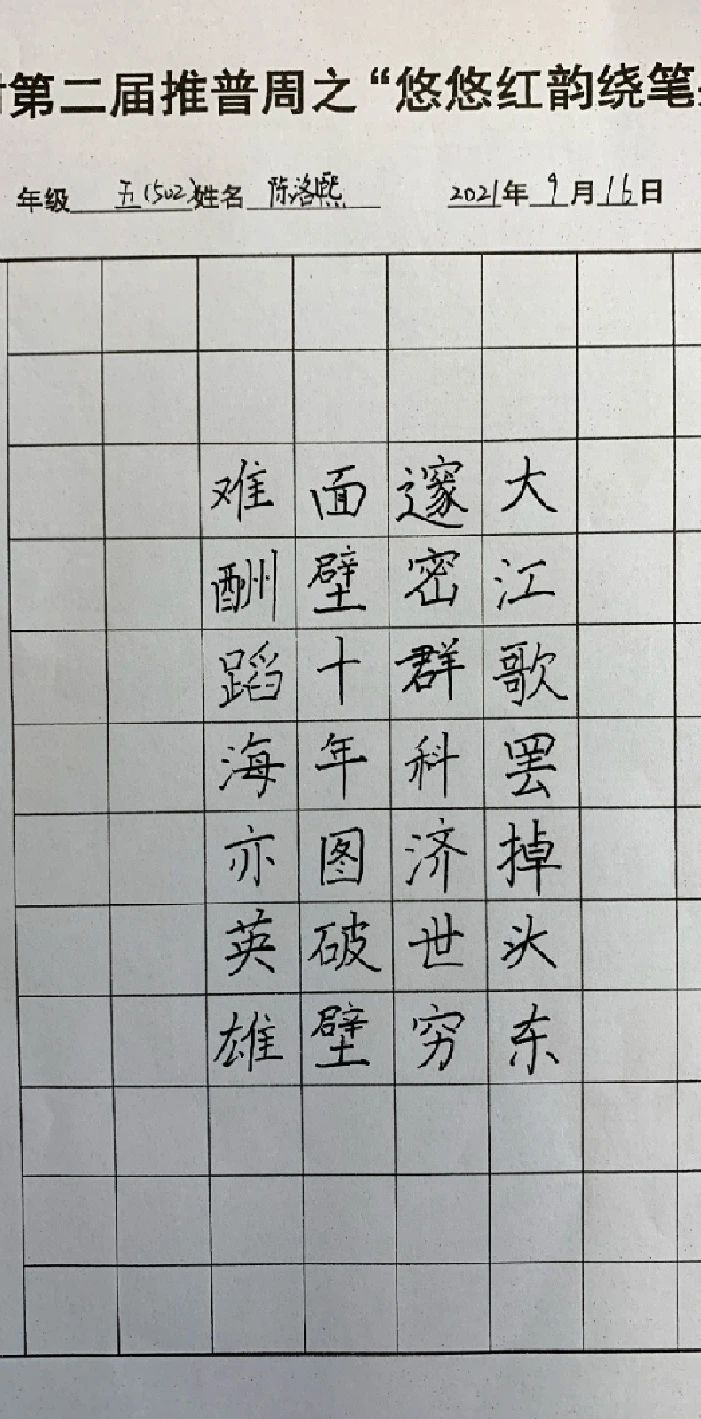 第二届推普周之“悠悠红韵绕笔
年级 五(502) 姓名 陈洛熙 2021年9月16日
大江歌罢掉头东
邃密群科济世穷
面壁十年图破壁
难酬蹈海亦英雄